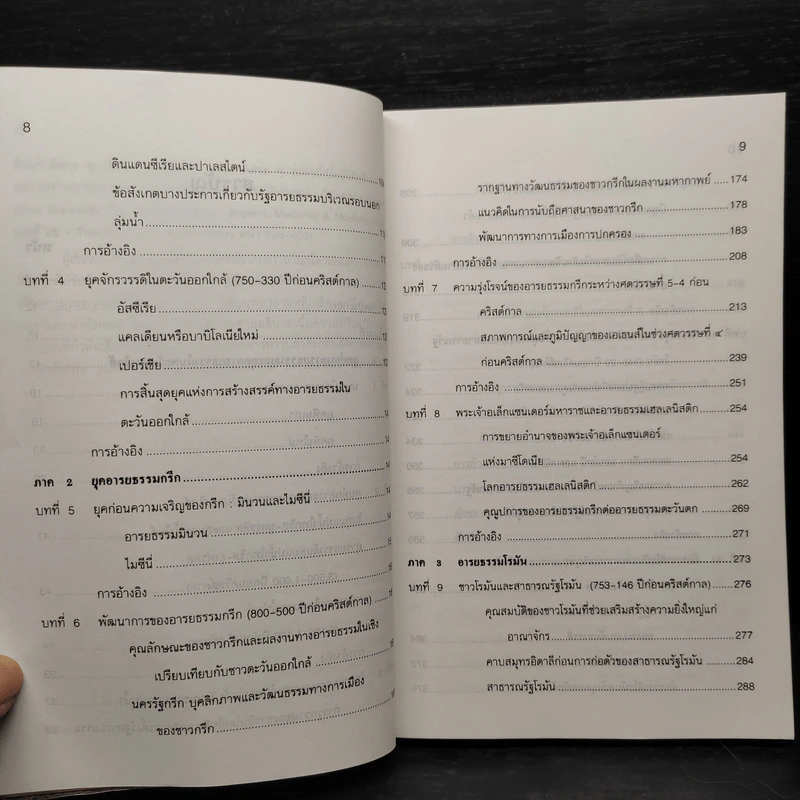 8
ดินแดนซีเรียและปาเลสไตน์
ข้อสังเกตบางประการเกี่ยวกับรัฐอารยธรรมบริเวณรอบนอก
ลุ่มน้ำ
การอ้างอิง
บทที่ 4 ยุคจักรวรรดิในตะวันออกใกล้ (750-330 ปีก่อนคริสต์กาล)
อัสซีเรีย
แคลเดียนหรือบาบิโลเนียใหม่
เปอร์เซีย
การสิ้นสุดยุคแห่งการสร้างสรรค์ทางอารยธรรมใน
ตะวันออกใกล้
การอ้างอิง
ภาค 2 ยุคอารยธรรมกรีก
บทที่ 5 ยุคก่อนความเจริญของกรีก : มินวนและไมซีนี่
อารยธรรมมินวน
ไมซีนี่
การอ้างอิง
บทที่ 6 พัฒนาการของอารยธรรมกรีก (800-500 ปีก่อนคริสต์กาล)
คุณลักษณะของชาวกรีกและผลงานทางอารยธรรมในเชิง
เปรียบเทียบกับชาวตะวันออกใกล้
นครรัฐกรีก บุคลิกภาพและวัฒนธรรมทางการเมือง
ของชาวกรีก
9
รากฐานทางวัฒนธรรมของชาวกรีกในผลงานมหากาพย์ 174
แนวคิดในการนับถือศาสนาของชาวกรีก 178
พัฒนาการทางการเมืองการปกครอง 183
การอ้างอิง 208
บทที่ 7 ความรุ่งโรจน์ของอารยธรรมกรีกระหว่างศตวรรษที่ 5-4 ก่อน
คริสต์กาล 213
สภาพการณ์และภูมิปัญญาของเอเธนส์ในช่วงศตวรรษที่ ๔
ก่อนคริสต์กาล 239
การอ้างอิง 251
บทที่ 8 พระเจ้าอเล็กแซนเดอร์มหาราชและอารยธรรมเฮลเลนิสติก 254
การขยายอำนาจของพระเจ้าอเล็กแซนเดอร์
แห่งมาซีโดเนีย 254
โลกอารยธรรมเฮลเลนิสติก 261
คุณูปการของอารยธรรมกรีกต่ออารยธรรมตะวันตก 269
การอ้างอิง 271
ภาค 3 อารยธรรมโรมัน 273
บทที่ 9 ชาวโรมันและสาธารณรัฐโรมัน (753-146 ปีก่อนคริสต์กาล) 276
คุณสมบัติของชาวโรมันที่ช่วยเสริมสร้างความยิ่งใหญ่แก่
อาณาจักร 277
คาบสมุทรอิตาลีก่อนการก่อตัวของสาธารณรัฐโรมัน 284
สาธารณรัฐโรมัน 288